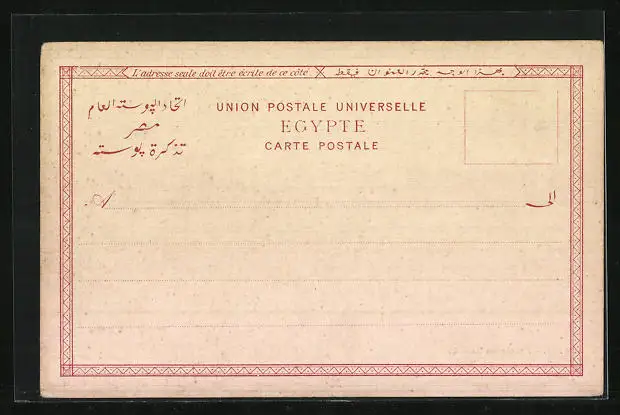 L'adresse seule doit être écrite de ce côté. بهذا الوجه يحرر العنوان فيقط
اتحاد البوسته العام
مصر
تذكرة بوسته
UNION POSTALE UNIVERSELLE
EGYPTE
CARTE POSTALE
A الى